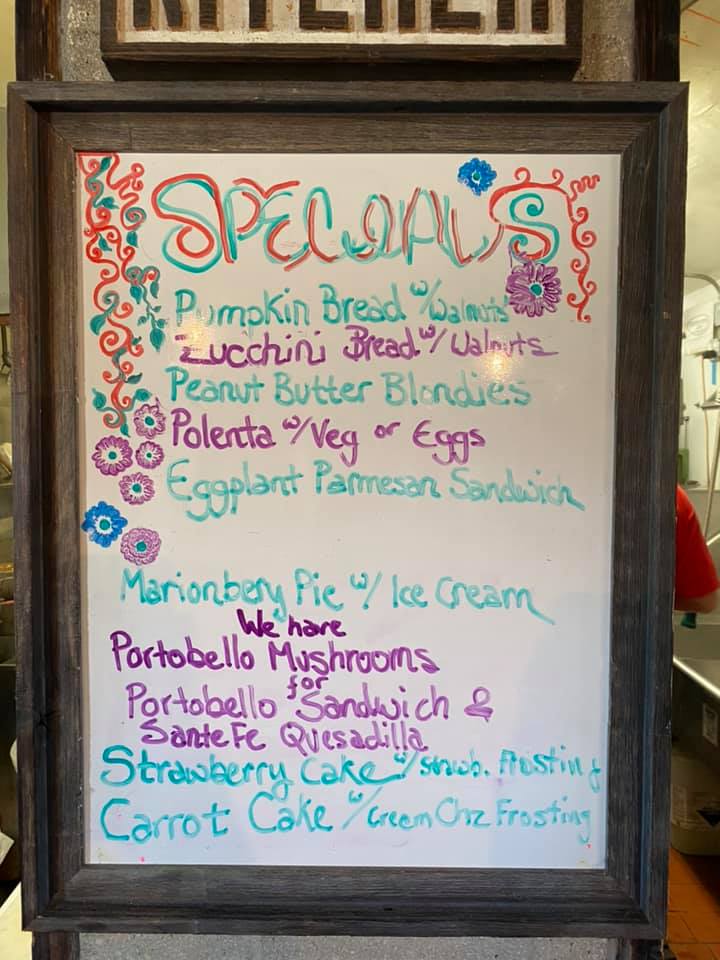 KITCHEN
SPECIALS
Pumpkin Bread w/Walnuts
Zucchini Bread w/Walnuts
Peanut Butter Blondies
Polenta w/Veg or Eggs
Eggplant Parmesan Sandwich
Marionbery Pie w/ Ice Cream
We have
Portobello Mushrooms
for
Portobello Sandwich &
Sante Fe Quesadilla
Strawberry Cake w/strawb. Frosting
Carrot Cake w/Creem Chz Frosting